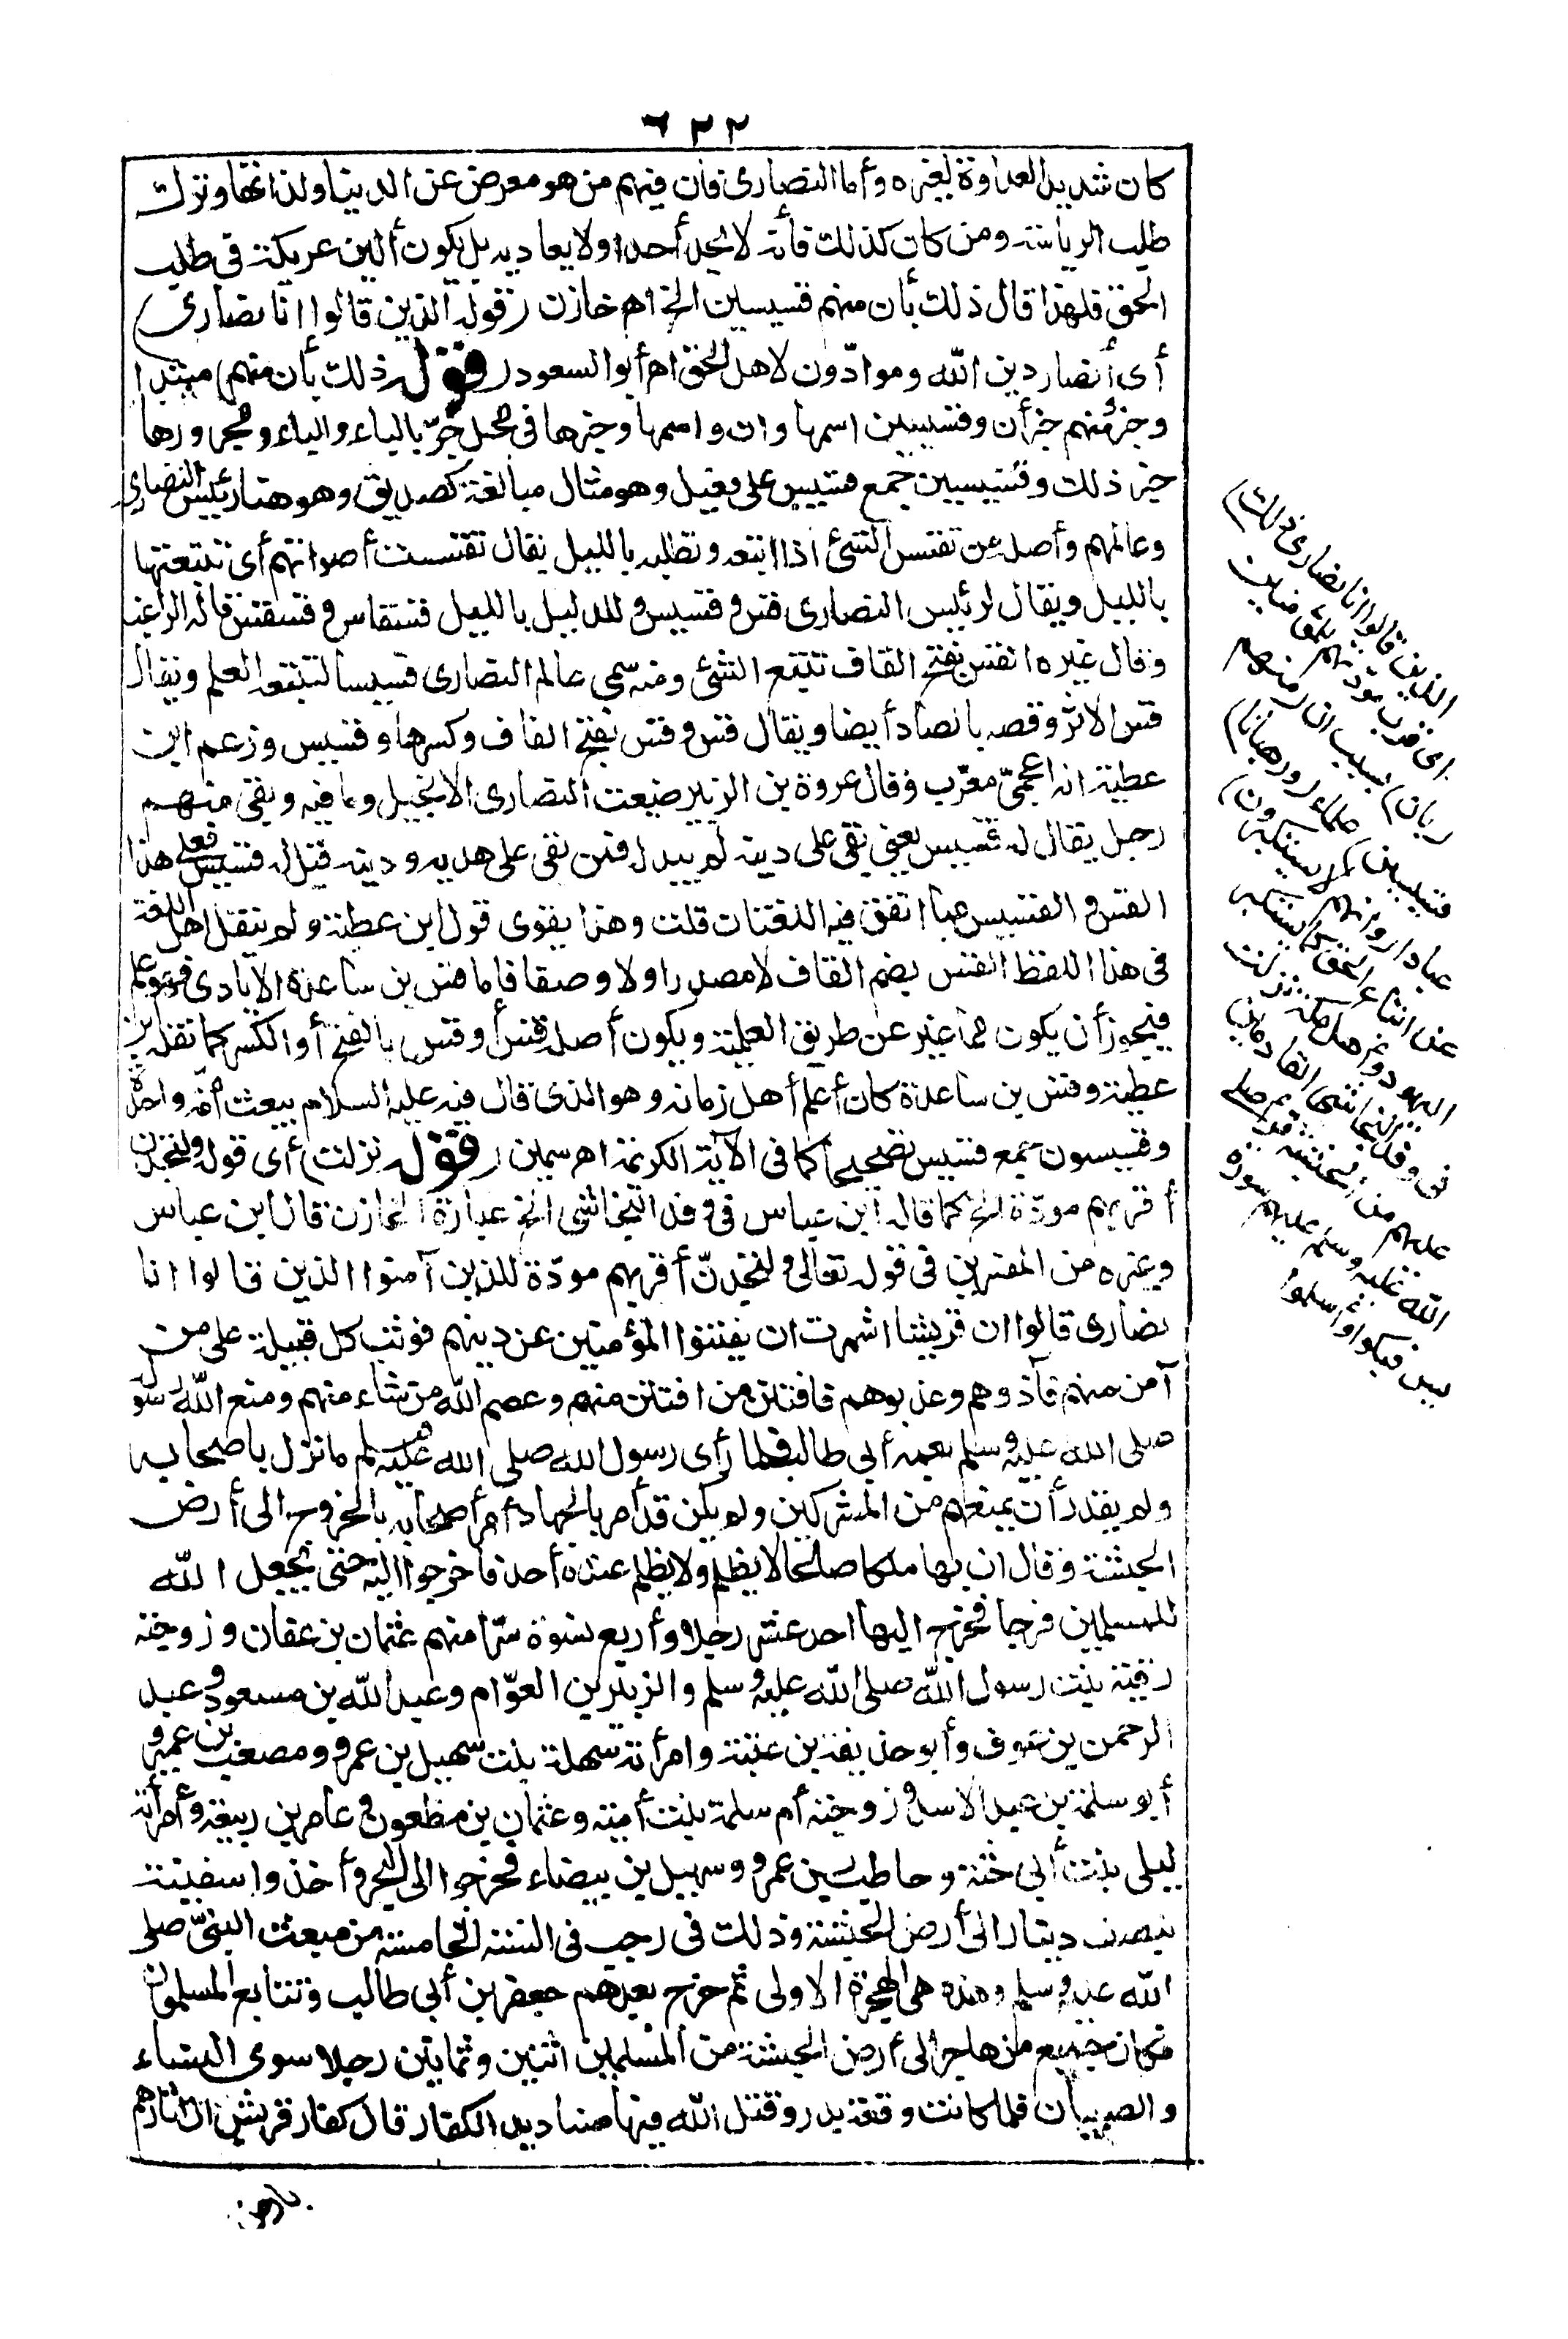 ٦٢٢
كان شديد العداوة لغيره وأما النصارى فان فيهم من هو معرض عن الدنيا ولذاتها وترك
طلب الرياسة ومن كان كذلك فانه لا يحسد أحدا ولا يعاديه بل يكون ألين عريكة فى طلب
الحق فلهذا قال ذلك بأن منهم قسيسين الخ اه خازن (قوله الذين قالوا انا نصارى)
أى أنصار دين الله وموادّون لاهل الحق اه أبو السعود (قوله ذلك بأن منهم) مبتدا
وخبر منهم خبر أن وقسيسين اسمها وان واسمها وخبرها فى محل جرّ بالباء والباء ومجرورها
خبر ذلك وقسيسين جمع قسيس على فعيل وهو مثال مبالغة كصديق وهو هنا رئيس النصارى
وعالمهم وأصله من تقسس الشئ اذا اتبعه وتطلبه بالليل يقال تقسست أصواتهم أى تتبعتها
بالليل ويقال لرئيس النصارى قس وقسيس وللدليل بالليل قسقاس وقسقس قاله الراغب
وقال غيره القس بفتح القاف تتبع الشئ ومنه سمى عالم النصارى قسيسا لتتبعه العلم ويقال
قس الاثر وقصه بالصاد أيضا ويقال قس وقس بفتح القاف وكسرها وقسيس وزعم ابن
عطية انه أعجمىّ معرّب وقال عروة بن الزبير ضيعت النصارى الانجيل وما فيه وبقى منهم
رجل يقال له قسيس يعنى بقى على دينه لم يبدله فمن بقى على هديه ودينه قيل له قسيس فعلى هذا
القس والقسيس مما اتفق فيه اللغتان قلت وهذا يقوى قول ابن عطية ولم ينقل أهل اللغة
فى هذا اللفظ القس بضم القاف لا مصدرا ولا وصفا فاما قس بن ساعدة الايادى فهو علم
فيجوز أن يكون مما غير عن طريق العلمية ويكون أصله قس أو قس بالفتح أو الكسر كما نقله ابن
عطية وقس بن ساعدة كان أعلم أهل زمانه وهو الذى قال فيه عليه السلام يبعث أمّة واحدة
وقسيسون جمع قسيس تصحيحا كما فى الآية الكريمة اه سمين (قوله نزلت) أى قوله ولتجدن
أقربهم مودّة الخ كما قاله ابن عباس فى وفد النجاشى الخ عبارة الخازن قال ابن عباس
وغيره من المفسرين فى قوله تعالى ولتجدنّ أقربهم مودّة للذين آمنوا الذين قالوا انا
نصارى قالوا ان قريشا ائتمرت ان يفتنوا المؤمنين عن دينهم فوثب كل قبيلة على من
آمن منهم فآذوهم وعذبوهم فافتتن من افتتن منهم وعصم الله من شاء منهم ومنع الله رسوله
صلى الله عليه وسلم بعمه أبى طالب فلما رأى رسول الله صلى الله عليه وسلم ما نزل بأصحابه
ولم يقدر أن يمنعهم من المشركين ولم يكن قد أمر بالجهاد أمر أصحابه بالخروج الى أرض
الحبشة وقال ان بها ملكا صالحا لا يظلم ولا يظلم عنده أحد فأخرجوا اليه حتى يجعل الله
للمسلمين فرجا فخرج اليها احد عشر رجلا وأربع نسوة سرّا منهم عثمان بن عفان وزوجته
رقية بنت رسول الله صلى الله عليه وسلم والزبير بن العوّام وعبد الله بن مسعود وعبد
الرحمن بن عوف وأبو حذيفة بن عتبة وامرأته سهلة بنت سهيل بن عمرو ومصعب بن عمير و
أبو سلمة بن عبد الاسد وزوجته أم سلمة بنت أمية وعثمان بن مظعون وعامر بن ربيعة وامرأته
ليلى بنت أبى حثمة وحاطب بن عمرو وسهيل بن بيضاء فخرجوا الى البحر وأخذوا سفينة
بنصف دينار الى أرض الحبشة وذلك فى رجب فى السنة الخامسة من مبعث النبىّ صلى
الله عليه وسلم وهذه هى الهجرة الاولى ثم خرج بعدهم جعفر بن أبى طالب وتتابع المسلمون
فكان جميع من هاجر الى أرض الحبشة من المسلمين اثنين وثمانين رجلا سوى النساء
والصبيان فلما كانت وقعة بدر وقتل الله فيها صناديد الكفار قال كفار قريش ان ثاركم
الذين قالوا انا نصارى ذلك)
أى قرب مودتهم للمؤمنين
(بأن) بسبب ان (منهم
قسيسين) علماء (ورهبانا)
عبادا (وانهم لا يستكبرون)
عن اتباع الحق كما يستكبر
اليهود وأهل مكة نزلت
فى وفد النجاشى القادمين
عليهم من الحبشة قرأ صلى
الله عليه وسلم عليهم سورة
يس فبكوا وأسلموا